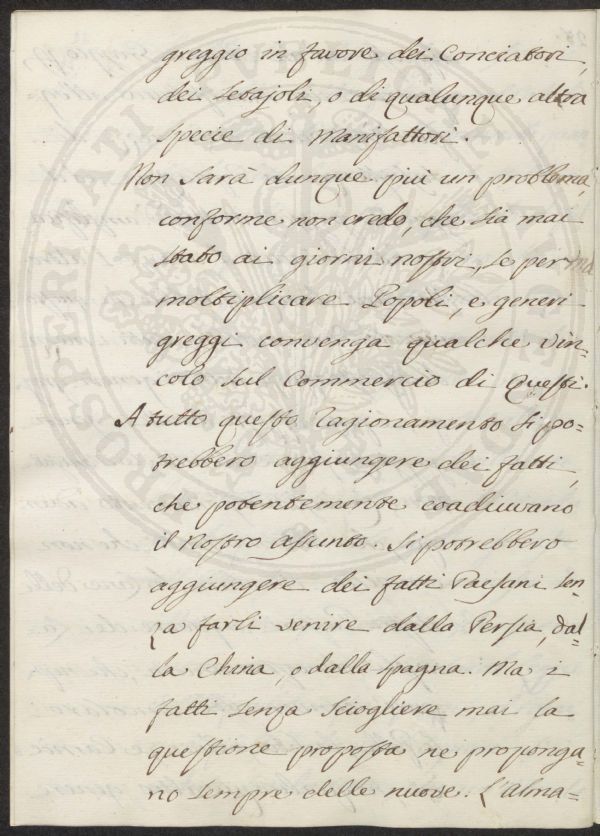 greggio in favore dei Conciatori,
dei Setajoli, o di qualunque altra
specie di Manifattori.
Non sarà dunque più un problema,
conforme non credo, che sia mai
stato ai giorni nostri, se per
moltiplicare Popoli, e generi
greggi convenga qualche vin-
colo sul Commercio di Questi.
A tutto questo ragionamento si po-
trebbero aggiungere dei fatti,
che potentemente coadiuvano
il Nostro assunto. Si potrebbero
aggiungere dei fatti Paesani sen-
za farli venire dalla Persia, dal-
la China, o dalla Spagna. Ma i
fatti senza sciogliere mai la
questione proposta ne proponga-
no sempre delle nuove. L'alma-
PROSPERITATI PUBLICAE AUGENDAE